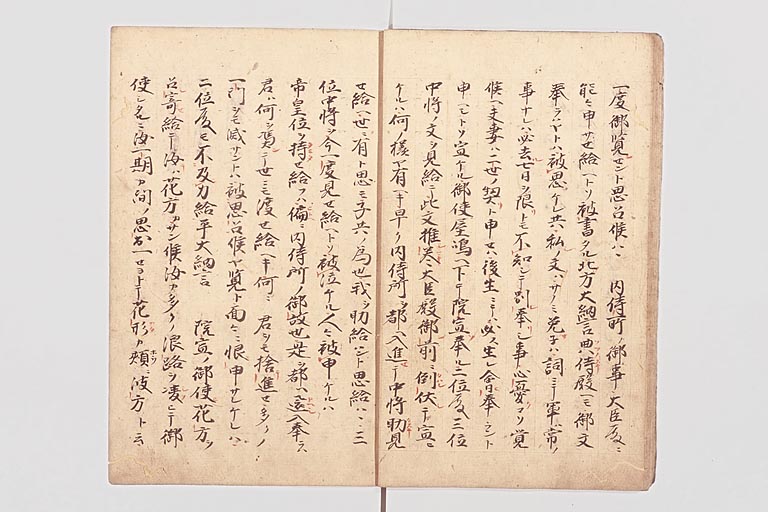 一度御覧セント思召候ハヽ 内侍所ノ御事大臣殿ニ
能々申サセ給ヘトソ被書タル北方大納言典侍殿ヘモ御文
奉ラハヤトハ被思ケレ共私ノ文ハサノミ
事ナレハ必去七日ヲ限トモ不知シテ別奉シ事心憂コソ覚
候ヘ夫妻ハ二世ノ契ト申セハ後生ニテ必ス生レ合奉ラント
申ヘモトソ宣ケル御使屋嶋ヘ下テ院宣奉ル二位殿三位
中将ノ文ヲ見給ニ此文推巻テ大臣殿御前ニ倒伏テ宣ニ
ケルハ何ノ様カ有ヘキ早ク内侍所ヲ都ヘ入進テ中将助見
セ給ヘ世ニ有ト思モ子共ノ為也我ヲ助給ハント思給ハヽ三
位中将ヲ今一度見セ給ヘトソ被泣ケル人々被申ケルハ
帝皇位ヲ持セ給フハ偏ニ内侍所ノ御故也是ヲ都ヘ返入奉ラハ
君ハ何ヲ馮ニテ世ニモ渡セ給ヘキ何ニ 君ヲモ捨進セ多クノ
一門ヲモ滅サントハ被思召候ヤ覧ト面々ニ恨申サレケレハ
二位殿モ不及力給平大納言 院宣ノ御使花方ヲ
召寄給テ汝ハ花方カサン候汝カ多クノ浪路ヲ凌ヒテ御
使シタルニ汝一期カ間ノ思出一セヨトテ花形カ頬ニ波方ト云